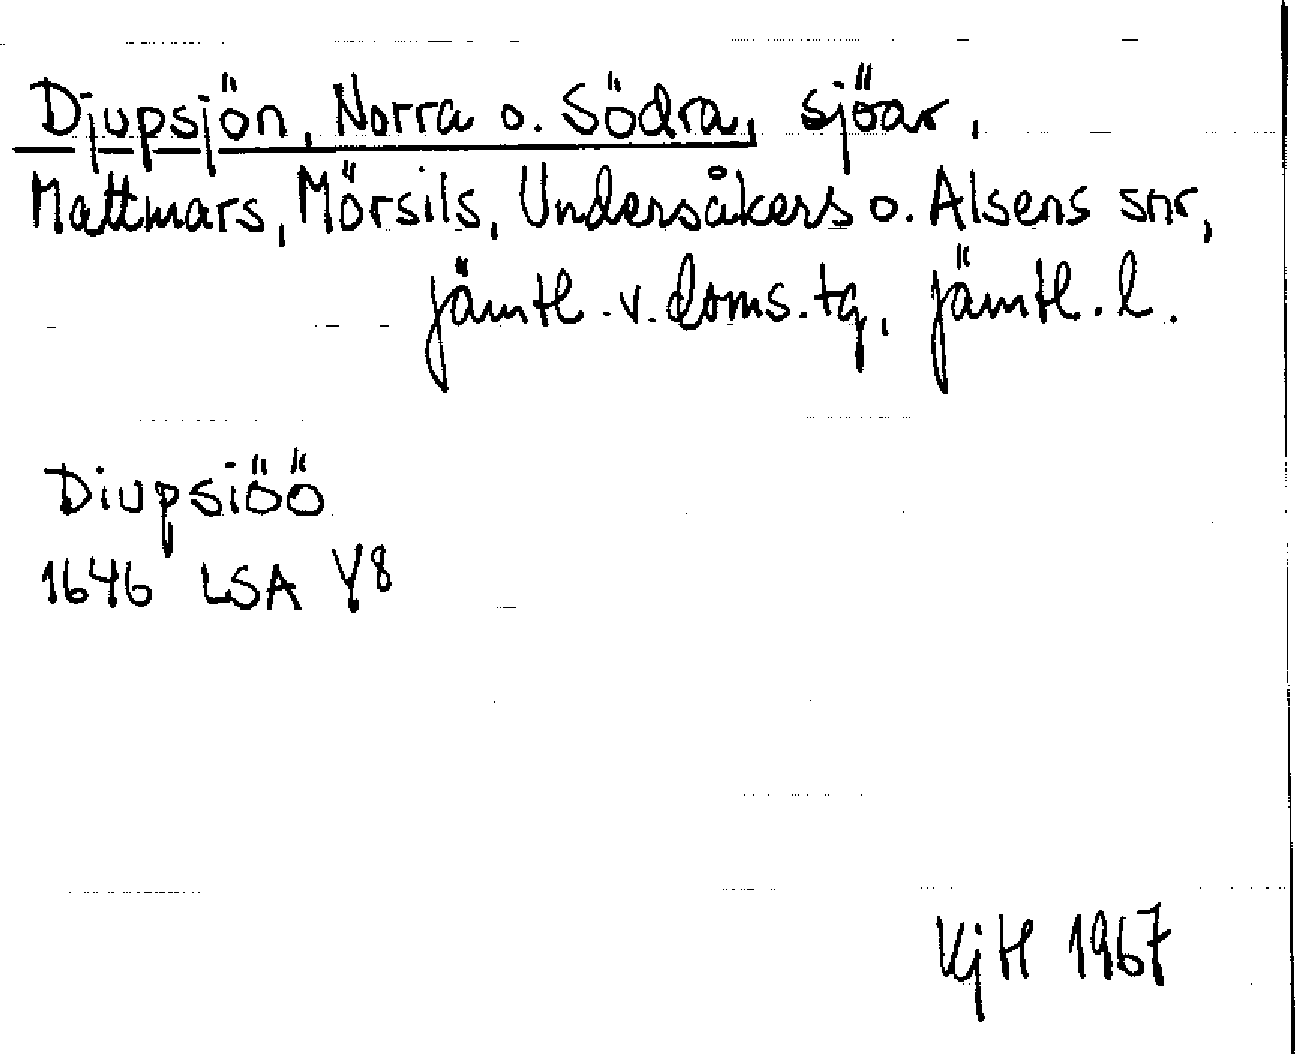 Djupsjön, Norra o. Södra, sjöar,
Mattmars, Mörsils, Undersåkers o. Alsens snr,
Jämtl. v. doms. tg, Jämtl. l.
Diupsiöö
1646 LSA Y8
KjH 1967